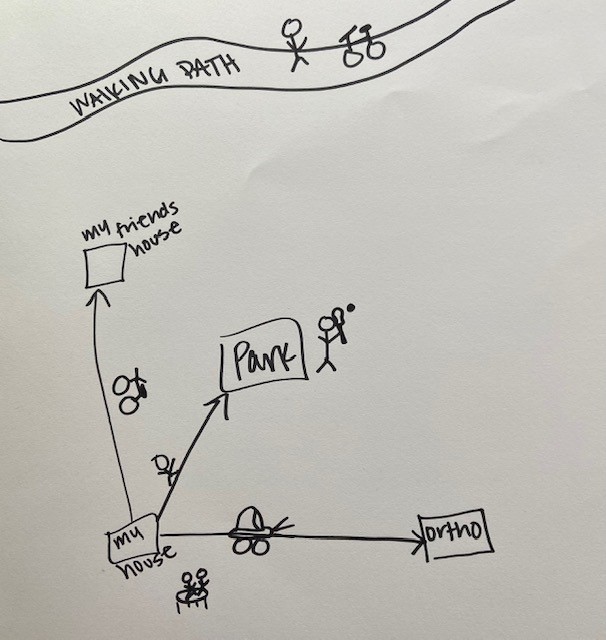 WALKING PATH
my friends
house
Park
my
house
ortho